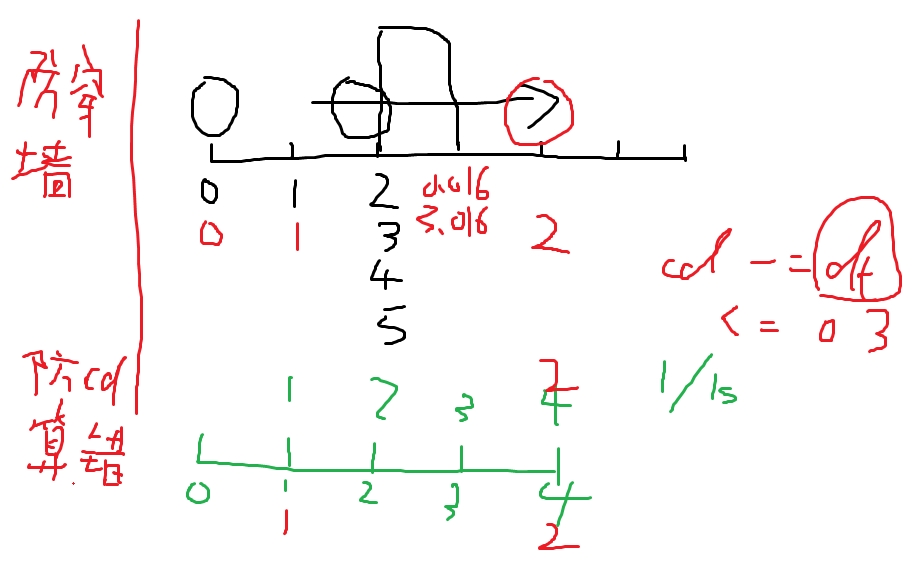 防穿
墙
0 1 2 0.016
0 1 3 3.016 2
4
5
cd -= dt
<= 0 3
防cd
算错
1 2 3 4 2
1/1s
0 1 2 3 4
1 2